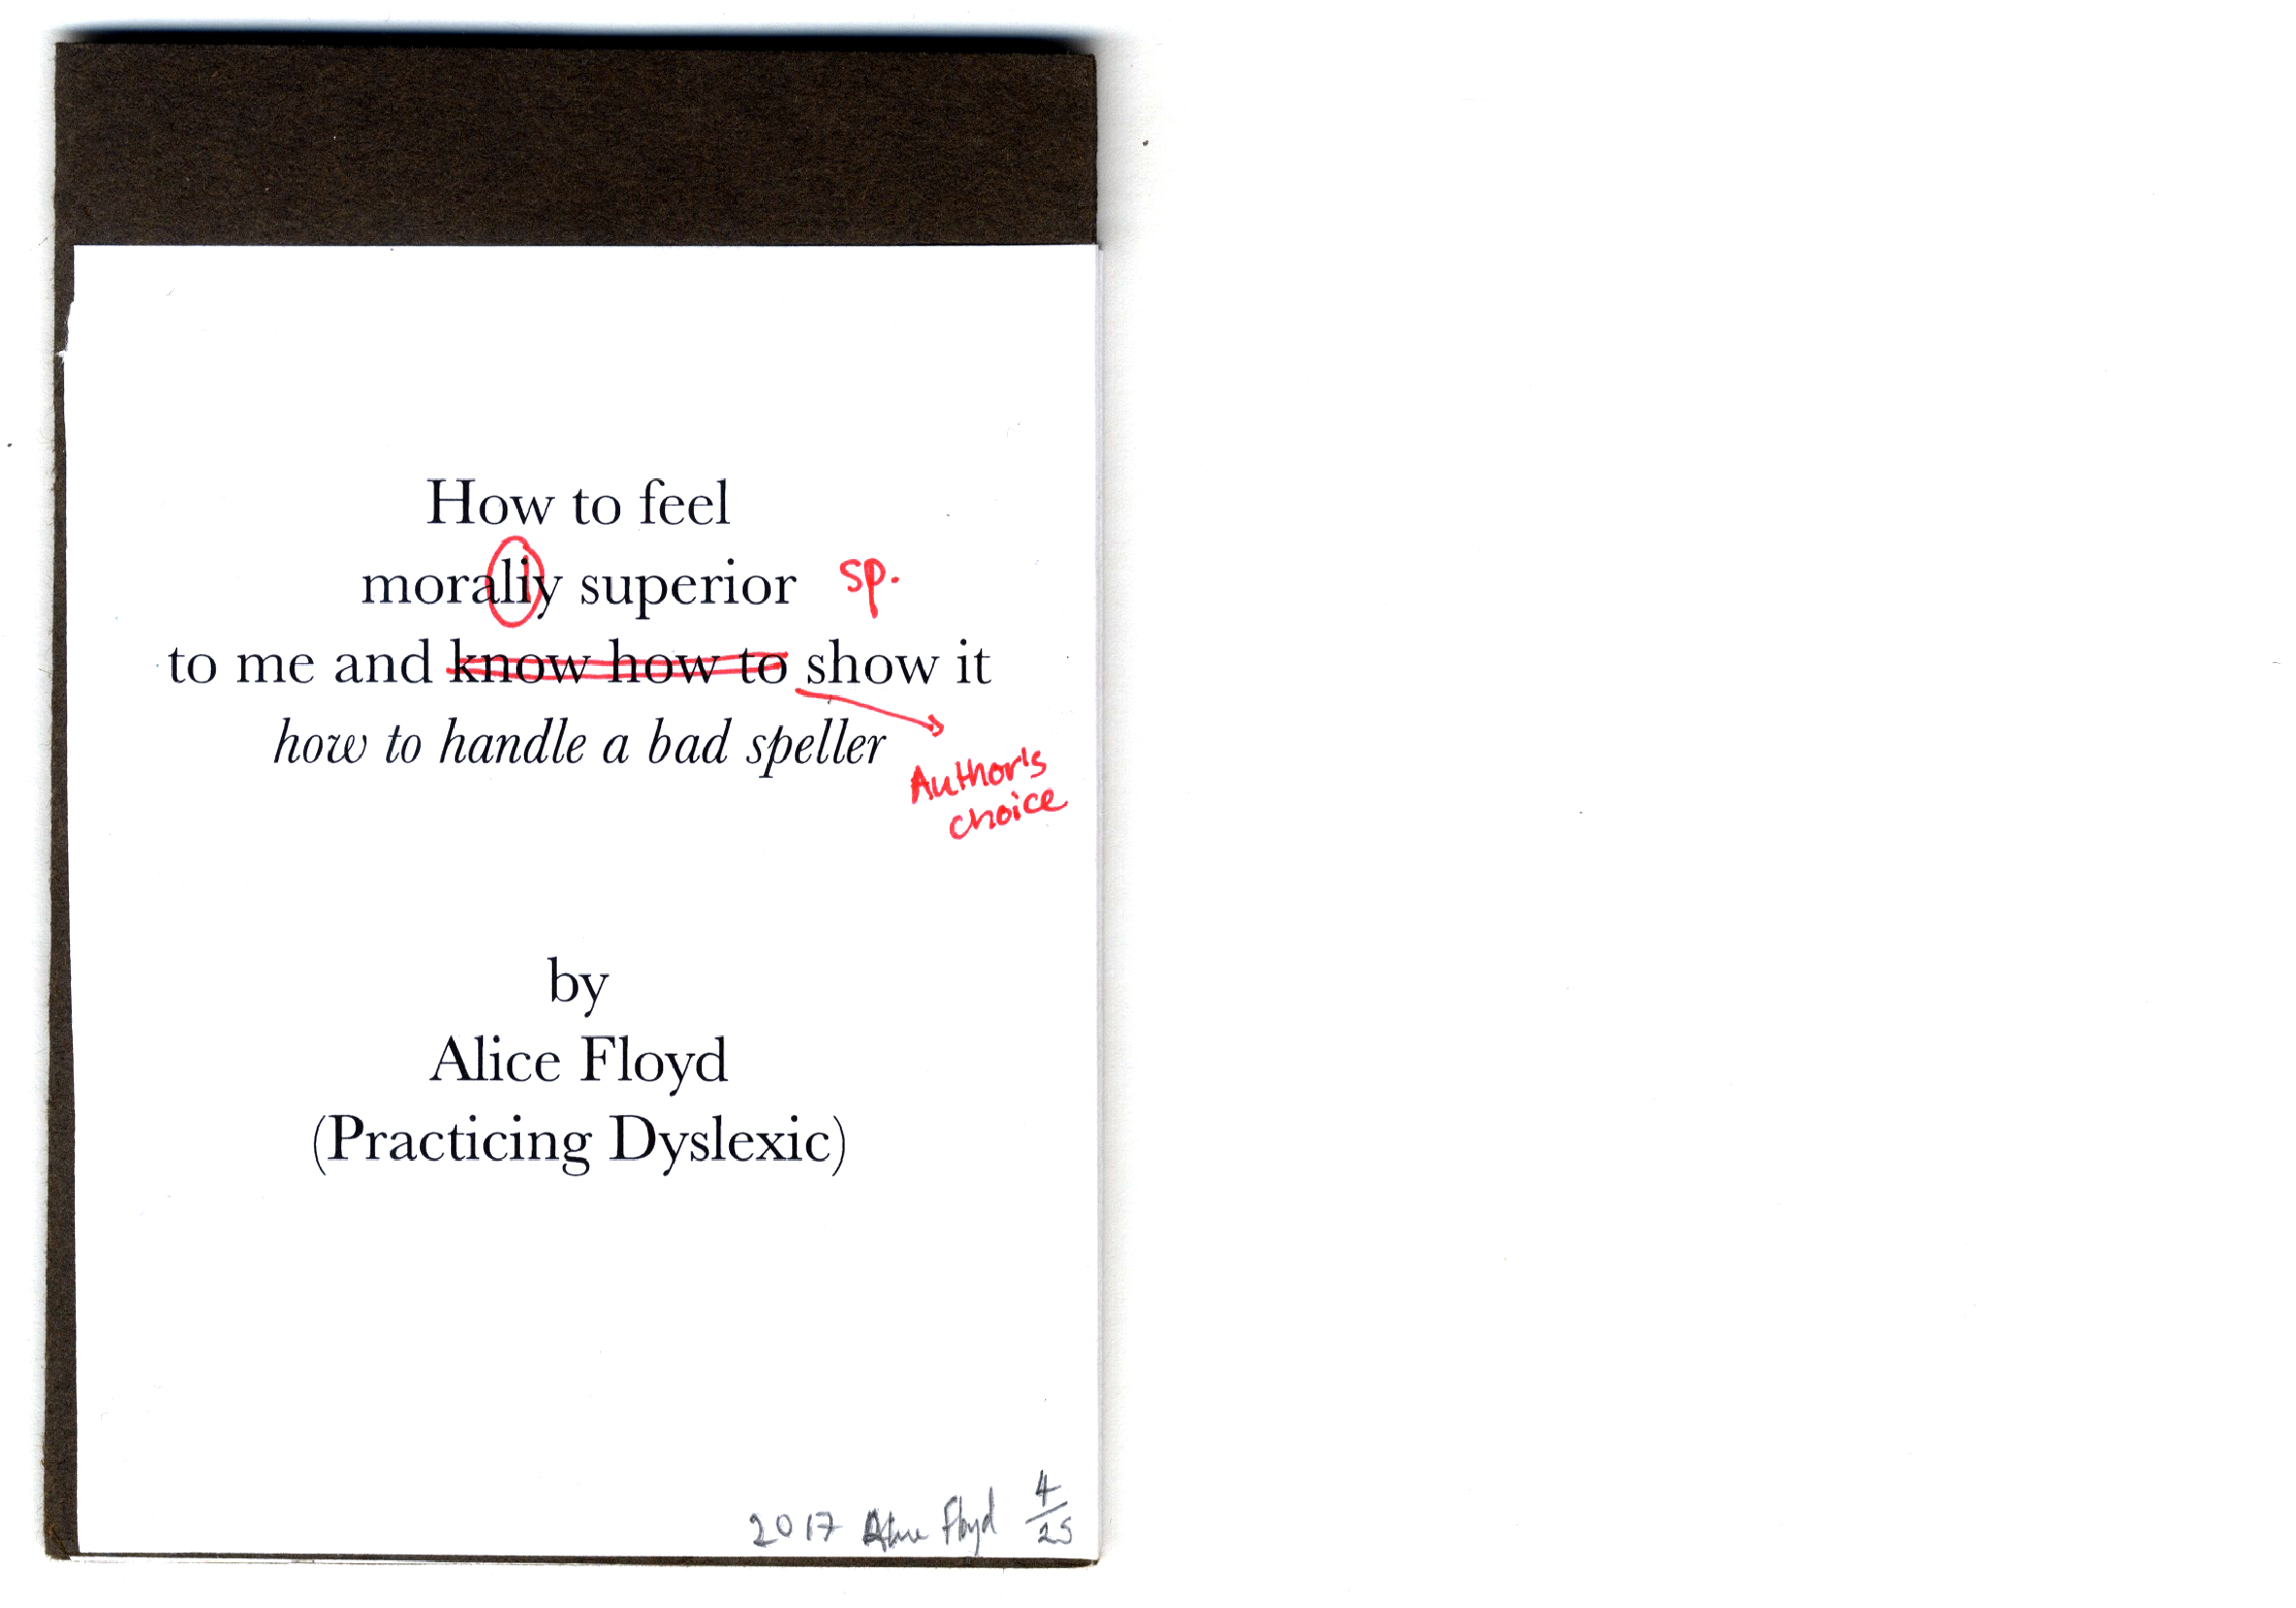 How to feel
moraliy superior sp.
to me and know how to show it
how to handle a bad speller
Author's
choice
by
Alice Floyd
(Practicing Dyslexic)
2017 Alice Floyd 4/25